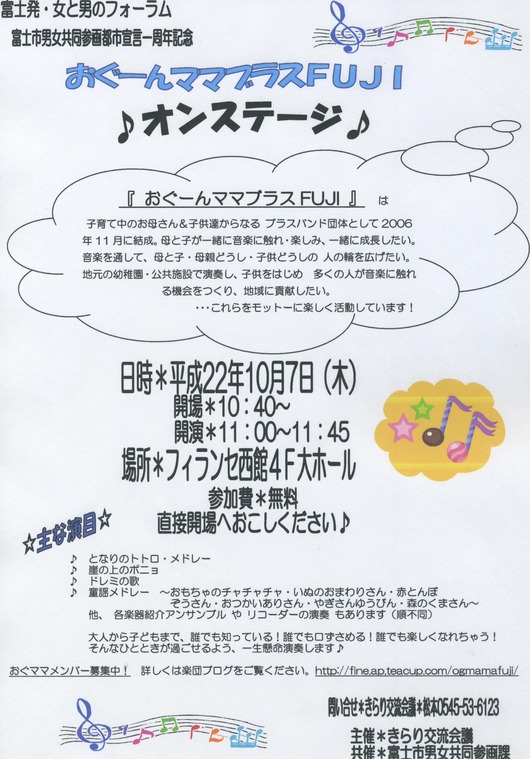 富士発・女と男のフォーラム
富士市男女共同参画都市宣言一周年記念
おぐーんママブラスFUJI
♪オンステージ♪
『 おぐーんママブラスFUJI 』 は
子育て中のお母さん＆子供達からなる ブラスバンド団体として2006
年11月に結成。母と子が一緒に音楽に触れ・楽しみ、一緒に成長したい。
音楽を通して、母と子・母親どうし・子供どうしの 人の輪を広げたい。
地元の幼稚園・公共施設で演奏し、子供をはじめ 多くの人が音楽に触れ
る機会をつくり、地域に貢献したい。
・・・これらをモットーに楽しく活動しています！
日時＊平成22年10月7日（木）
開場＊10：40～
開演＊11：00～11：45
場所＊フィランセ西館4F大ホール
参加費＊無料
直接開場へおこしください♪
☆主な演目☆
♪ となりのトトロ・メドレー
♪ 崖の上のポニョ
♪ ドレミの歌
♪ 童謡メドレー ～おもちゃのチャチャチャ・いぬのおまわりさん・赤とんぼ
ぞうさん・おつかいありさん・やぎさんゆうびん・森のくまさん～
他、 各楽器紹介アンサンブル や リコーダーの演奏 もあります（順不同）
大人から子どもまで、誰でも知っている！誰でも口ずさめる！誰でも楽しくなれちゃう！
そんなひとときが過ごせるよう、一生懸命演奏します♪
おぐママメンバー募集中！ 詳しくは楽団ブログをご覧ください。http://fine.ap.teacup.com/ogmamafuji/
問い合せ＊きらり交流会議＊松本0545-53-6123
主催＊きらり交流会議
共催＊富士市男女共同参画課